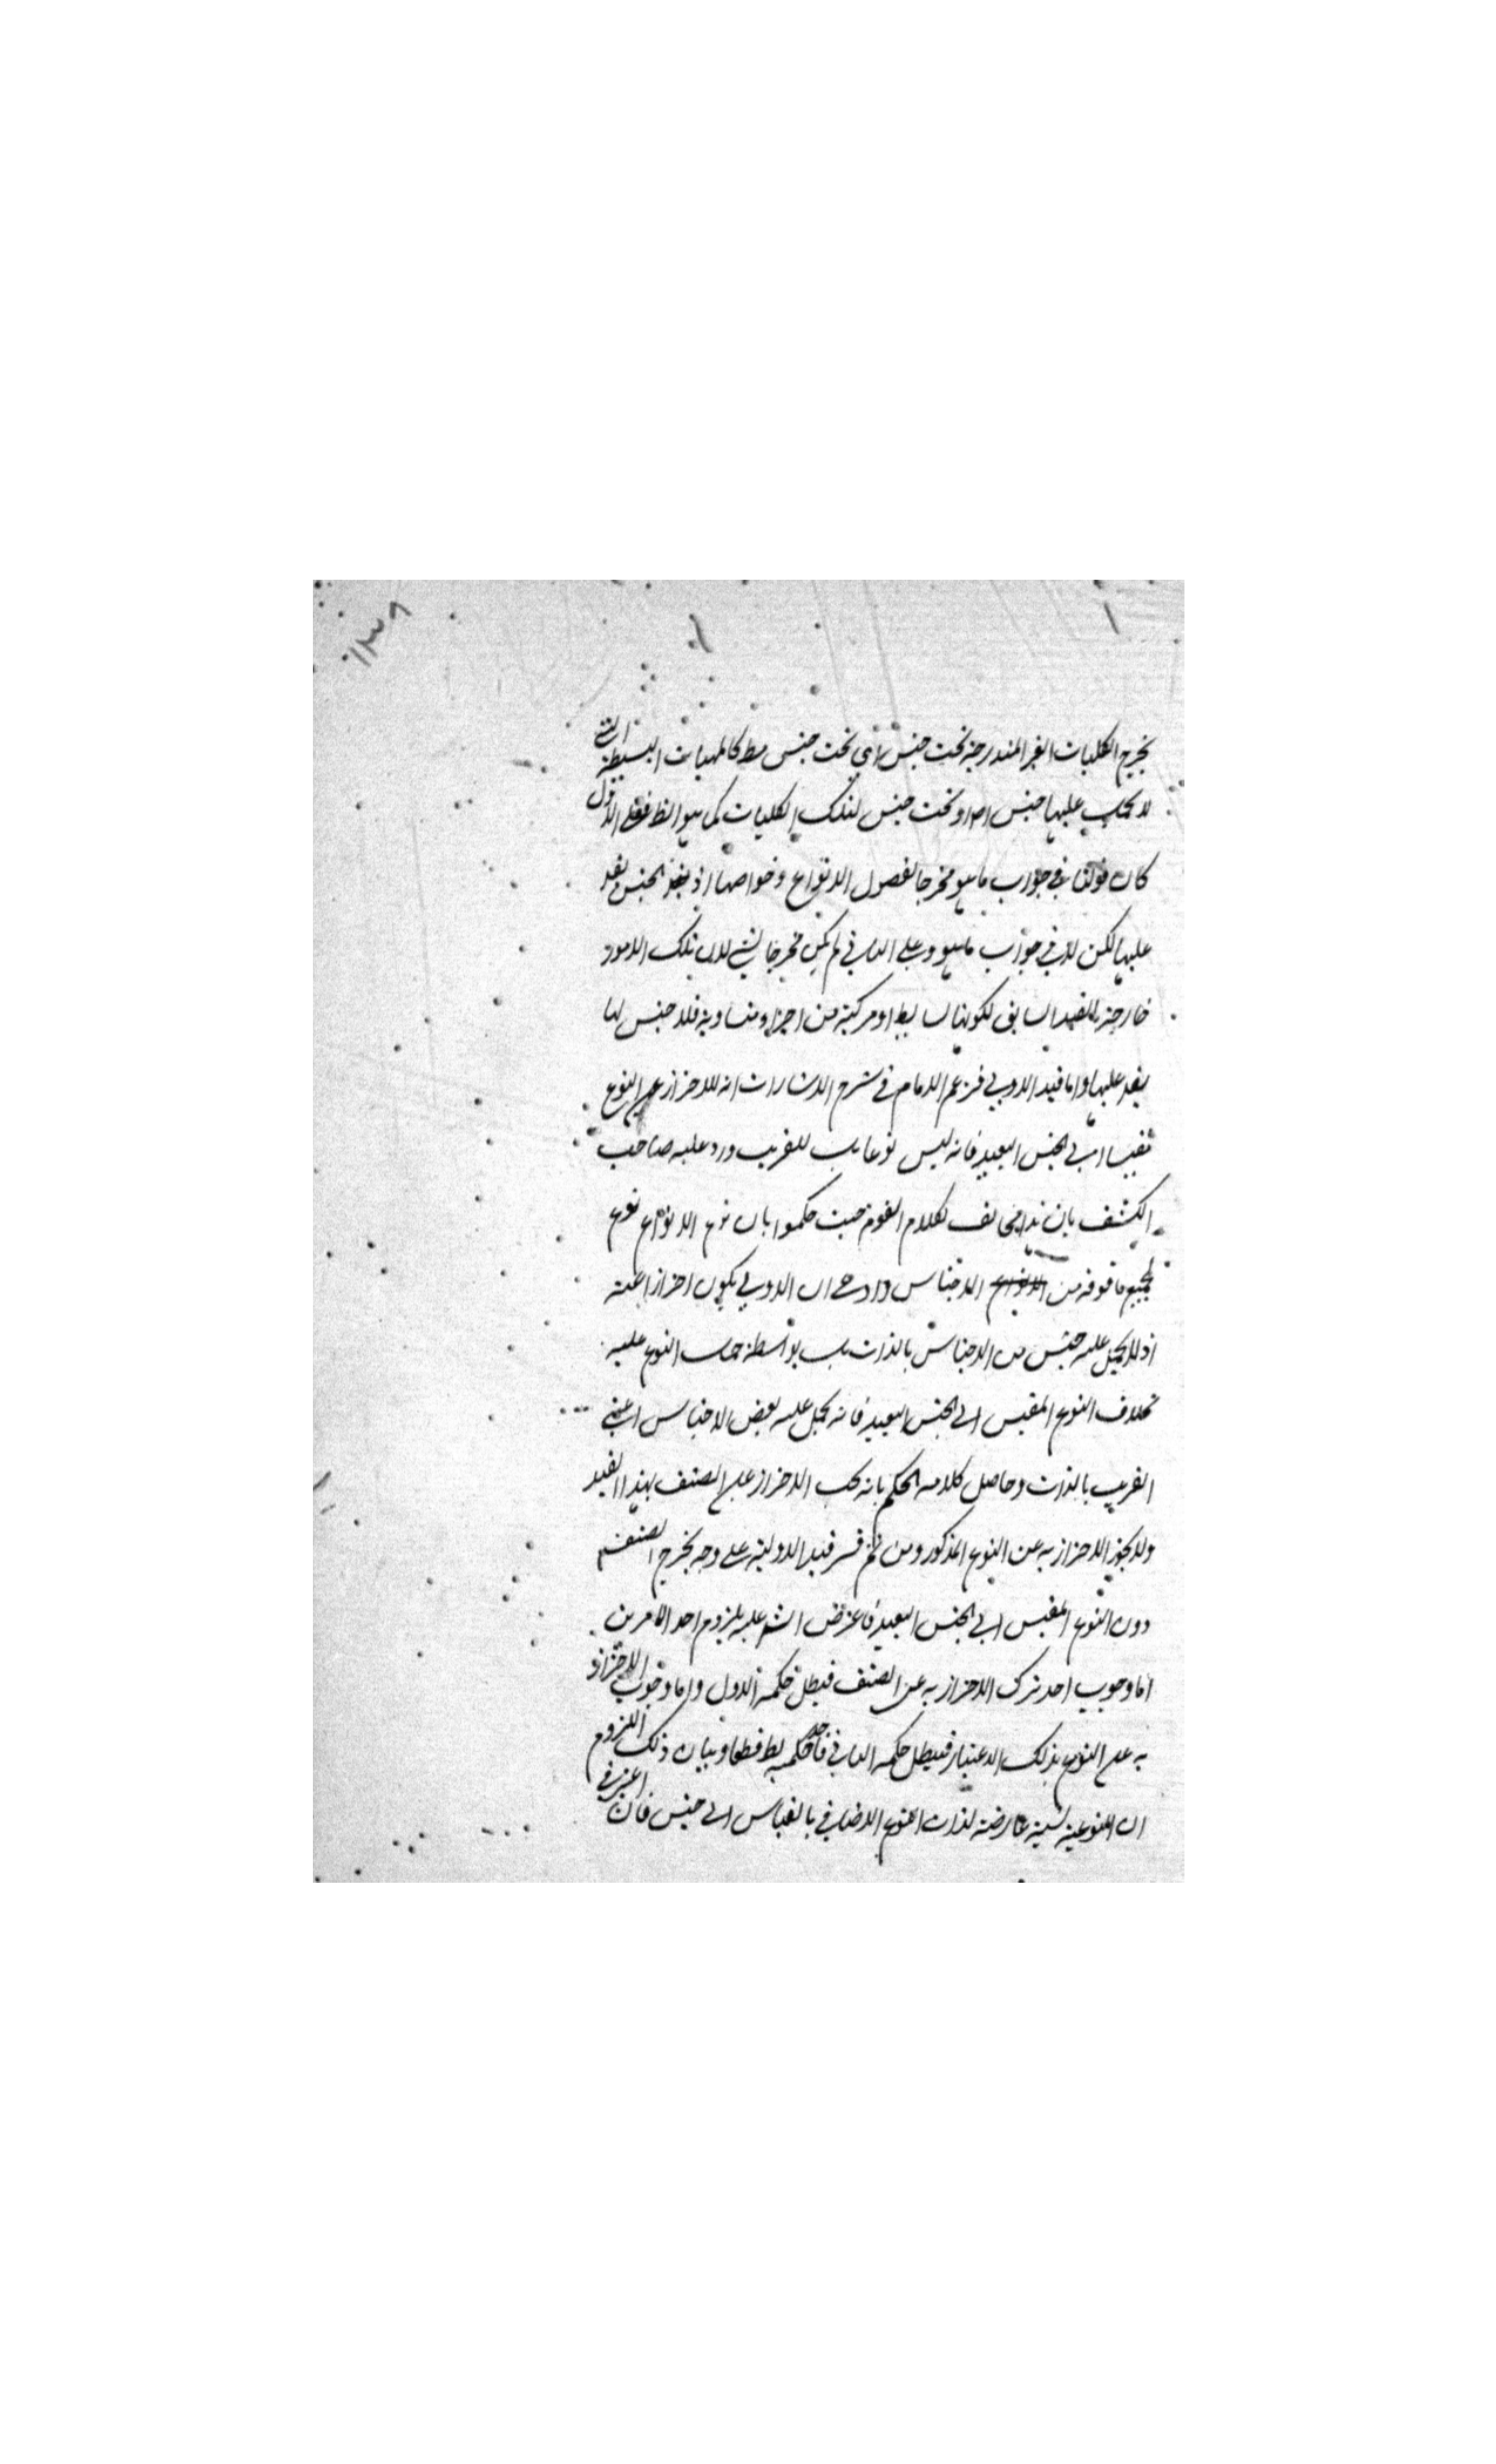 ١٣٩
يخرج الكليات الغير المندرجة تحت جنس أي تحت جنس مط كالمهيات البسيطة التي
لا يحمل عليها جنس اصلا او تحت جنس لتلك الكليات كما هو الظ فعلى الاول
كان قولنا في جواب ما هو مخرجا لفصول الانواع وخواصها اذ الجنس يقال
عليها لكن لا في جواب ما هو وعلى الثاني لم يكن مخرجا لشئ لان تلك الامور
خارجة بالقيد السابق لكونها بسايط او مركبة من اجزاء متساوية فلا جنس لها
يقال عليها واما قيد الاولي فزعم الامام في شرح الاشارات انه للاحتراز عن النوع
مقيسا الى الجنس البعيد فانه ليس نوعا له بل للقريب ورد عليه صاحب
الكشف بان هذا مخالف لكلام القوم حيث حكموا بان نوع الانواع نوع
لجميع ما فوقه من الاجناس وادعى ان الاولي يكون احترازا عنه
اذ لا يحمل عليه جنس من الاجناس بالذات بل بواسطة حمل النوع عليه
بخلاف النوع المقيس الى الجنس البعيد فانه يحمل عليه بعض الاجناس اعني
القريب بالذات وحاصل كلامه الحكم بانه يجب الاحتراز عن الصنف بهذا القيد
ولا يجوز الاحتراز به عن النوع المذكور ومن ثم فسر قيد الاولية على وجه يخرج الصنف
دون النوع المقيس الى الجنس البعيد فاعترض الشم عليه بلزوم احد الامرين
اما وجوب احد ترك الاحتراز به عن الصنف فيبطل حكمه الاول واما وجوب الاحتراز
به عن النوع بذلك الاعتبار فيبطل حكمه الثاني فاحد حكميه بط قطعا وبيان ذلك اللزوم
ان النوعية نسبة عارضة لذات النوع الاضافي بالقياس الى جنس فان اعتبر في